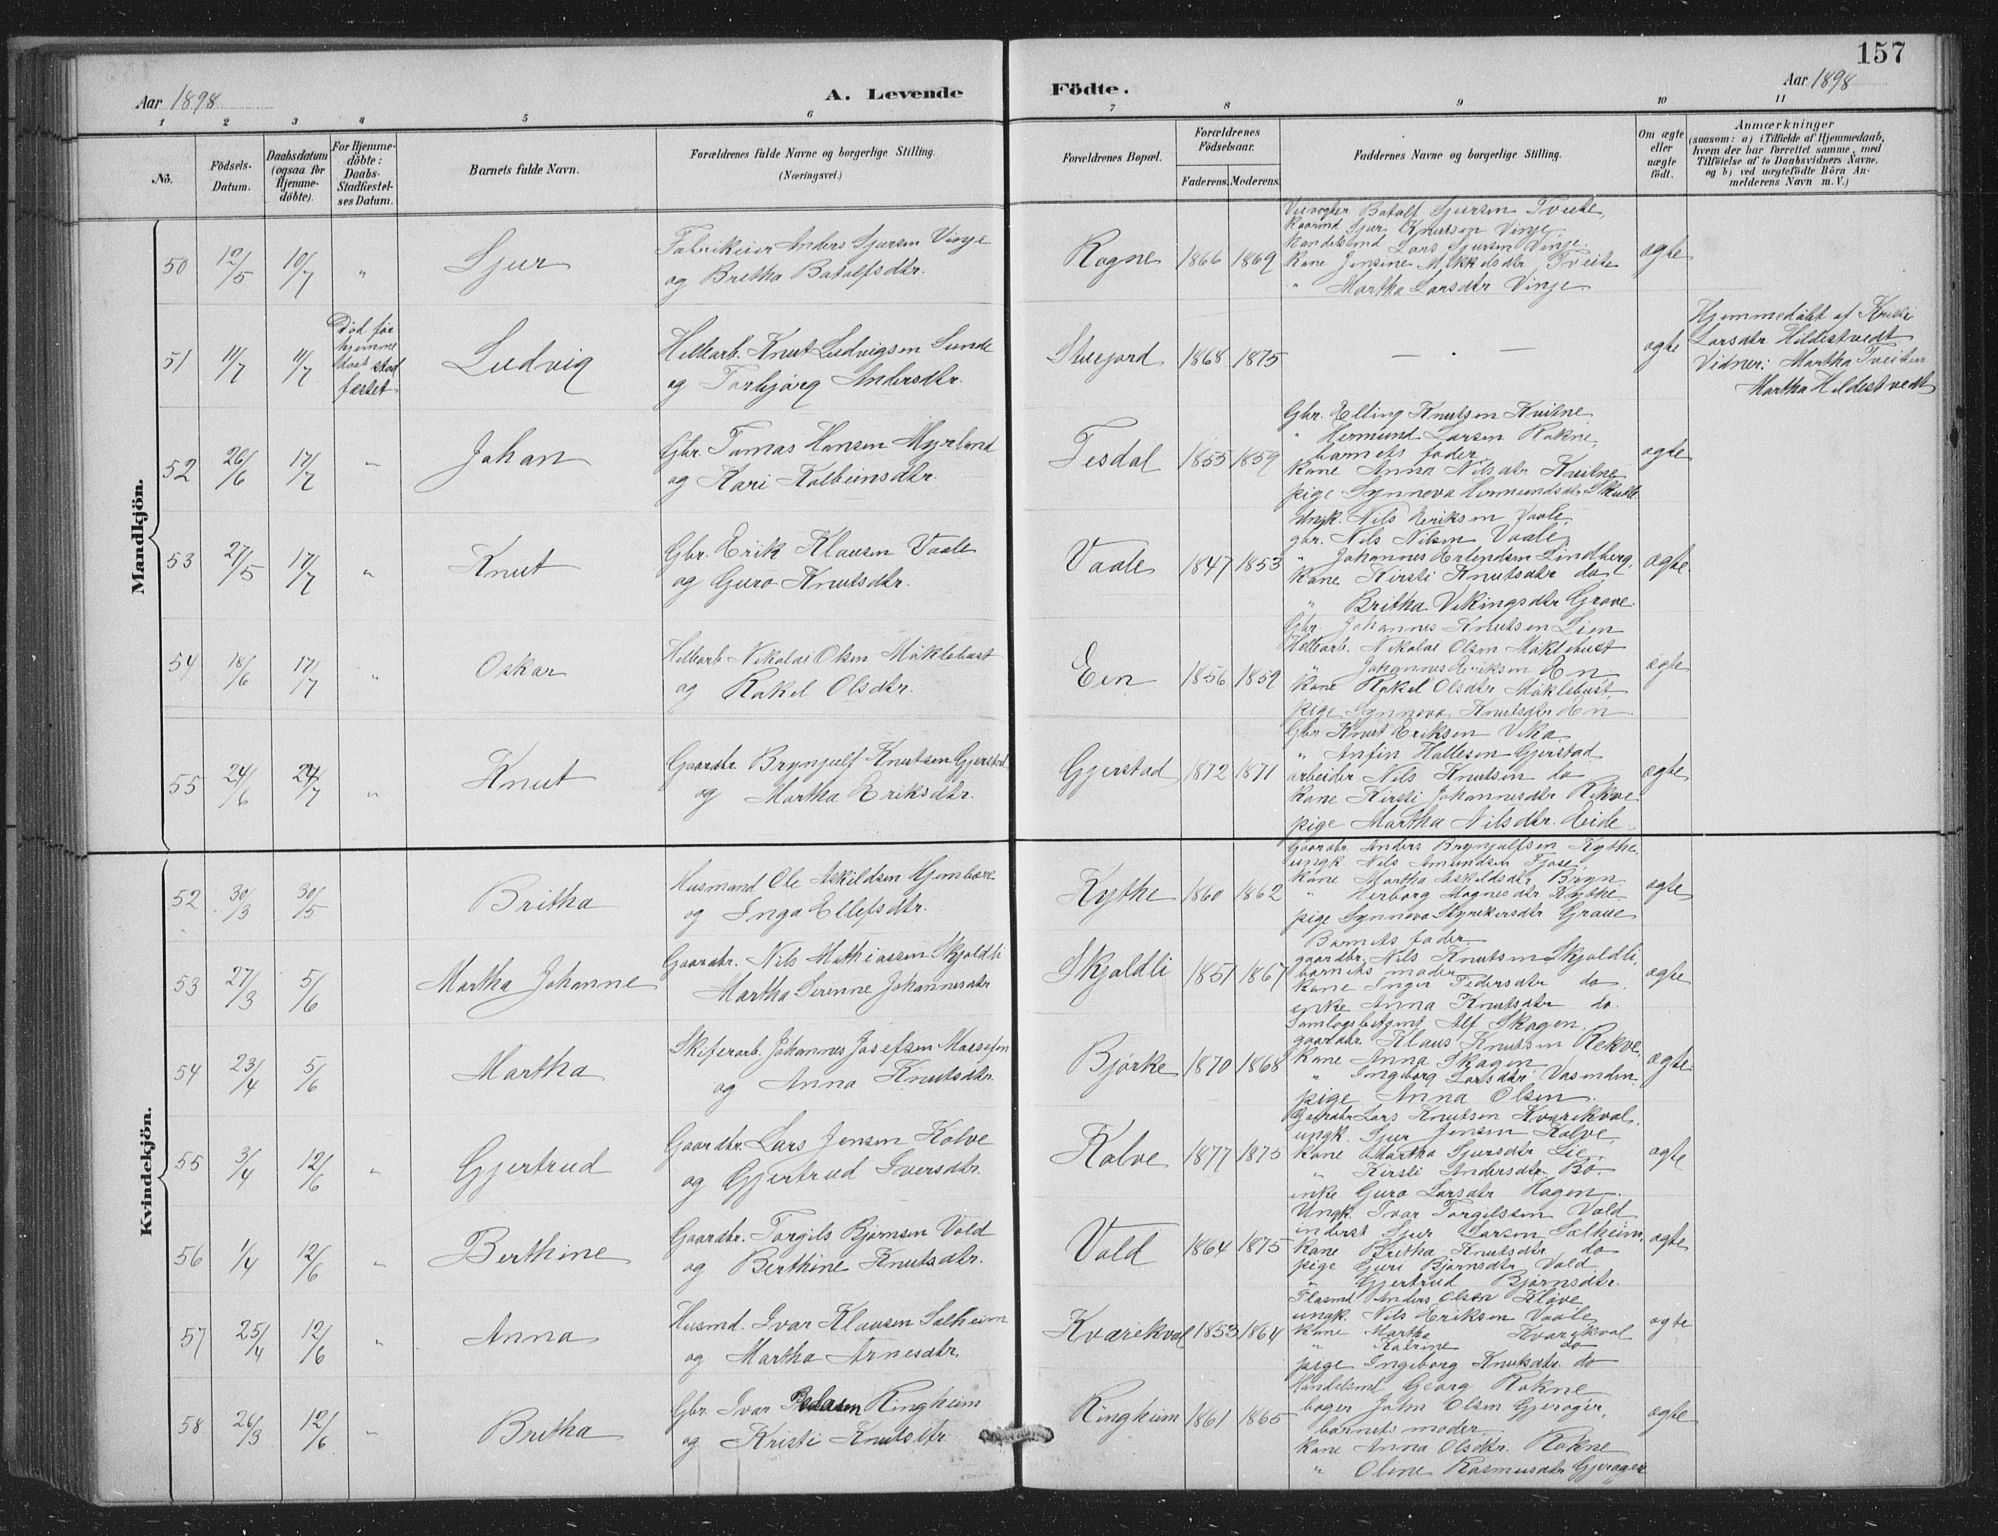 157
Aar 1898
A. Levende
Födte.
Aar 1898
1 2 3 4 5 6 7 8 9 10 11
No.
Födsels-
Datum.
Daabsdatum
(ogsaa for
Hjemme-
döbte).
For Hjemme-
döbte:
Daabs-
Stadfæstel-
ses Datum.
Barnets fulde Navn.
Forældrenes fulde Navne og borgerlige Stilling.
(Næringsvei.)
Forældrenes Bopæl.
Forældrenes
Födselsaar.
Faderens. Moderens.
Faddernes Navne og borgerlige Stilling.
Om ægte
eller
uægte
födt.
Anmærkninger
(saasom: a) i Tilfælde af Hjemmedaab,
hvem der har forrettet samme, med
Tilföielse af to Daabsvidners Navne,
og b) ved uægtefödte Börn An-
melderens Navn m. V.)
Mandkjön.
50 12/5 10/7 " Sjur
Fabrikeier Anders Sjursen Vinje
og Britha Batalfsdtr.
Rogne 1866 1869
Batalf Sjursen Tveite
Kaarmd Sjur Knutsen Vinje
Handelsmd Lars Sjursen Vinje
Kone Jensine Mikkelsdtr Tveite
" Martha Larsdtr Vinje
ægte
51 11/7 11/7
Död før
hjemme
daab stad
fæstet
Ludvig
Hellearb. Knut Ludvigsen Sunde
og Torbjørg Andersdtr.
1868 1875
— . —
ægte
Hjemmedøbt af
Larsdtr Hildestvedt
Vidner: Martha Tveiten
Martha Hildestvedt
52 26/6 17/7 " Johan
Gbr. Tomas Hansen Myrland
og Kari Kolbeinsdtr.
Tesdal 1853 1859
Gbr. Elling Knutsen Kvitne
" Hermund Larsen Rokne
barnets fader
Kone Anna Nilsdtr Kvitne
pige Synneva Hermundsdtr
ægte
53 27/5 17/7 " Knut
Gbr. Erik Klausen Vaale
og Guro Knutsdtr.
Vaale 1847 1853
Ungk. Nils Eriksen Vaale
gbr. Nils Nilsen Vaale
" Johannes Erlendsen Lindberg
Kone Kirsti Knutsdtr do
" Britha Vikingsdtr Grove
ægte
54 18/6 17/7 " Oskar
Hellearb Nikolai Olsen Møklebust
og Rakel Olsdtr.
Een 1856 1859
Gbr. Johannes Knutsen Lien
Hellearb. Nikolai Olsen Møklebust
" Johannes Eriksen En
Kone Rakel Olsdtr Møklebust
pige Synneva Knutsdtr En
ægte
55 24/6 24/7 " Knut
Gaardbr. Brynjulf Knutsen Gjerstad
og Martha Eriksdtr.
Gjerstad 1872 1871
Gbr Knut Eriksen Vika
" Anfin Hallesen Gjerstad
arbeider Nils Knutsen do
Kone Kirsti Johannesdtr Rekve
pige Martha Nilsdtr. Eide
ægte
Kvindekjön.
52 30/3 30/5 Britha
Husmand Ole Askildsen
og Inga Ellefsdtr.
Kythe 1860 1862
Gaardbr Anders Brynjulfsen Kythe
ungk Nils Amundsen Fjose
Kone Martha Askildsdtr Bryn
" Herborg Magnesdtr Kythe
pige Synneva Styrekersdtr Graue
ægte
53 27/3 5/6 Martha Johanne
Gaardbr. Nils Mathiassen Skjoldli
Martha Serenne Johannesdtr
Skjoldli 1851 1867
Barnets fader
gaardbr. Nils Knutsen Skjoldli
barnets moder
Kone Inger Pedersdtr do
enke Anna Knutsdtr do.
ægte
54 23/4 5/6 Martha
Skiferarb. Johannes Josefsen
og Anna Knutsdtr.
Bjørke 1870 1868
Alf Skogen
gaardbr. Klaus Knutsen Rekve
Kone Anna Skogen
" Ingeborg Larsdtr Vasenden
pige Anna Olsen
ægte
55 3/4 12/6 " Gjertrud
Gaardbr. Lars Jensen Kolve
og Gjertrud Iversdtr.
Kolve 1877 1875
Gaardbr Lars Knutsen Kvarekval
ungk. Sjur Jensen Kolve
Kone Martha Sjursdtr Lie
" Kirsti Andersdtr Bø
enke Guro Larsdtr Hagen
ægte
56 1/4 12/6 " Berthine
Gaardbr. Torgils Bjørnsen Vold
og Berthine Knutsdtr.
Vold 1864 1875
Ungk. Ivar Torgilssen Vold
inderst Sjur Larsen Salheim
Kone Britha Knutsdtr do
pige Guri Bjørnsdtr Vold
" Gjertrud Bjørnsdtr.
ægte
57 25/4 12/6 " Anna
Husmd. Ivar Klausen Salheim
og Martha Arnesdtr.
Kvarekval 1853 1864
Plasmd Anders Olsen Kløve
ungk. Nils Eriksen Vaale
Kone Martha Kvarekval
" Katrine do
pige Ingeborg Knutsdtr. do
ægte
58 26/3 12/6 " Britha
Gbr. Ivar Ringheim
og Kristi Knutsdtr.
Ringheim 1861 1865
Handelsmd Georg Rokne
bager John Olsen Gjerager
barnets moder
Kone Anna Olsdtr. Rokne
" Oline Rasmusdtr Gjerager
ægte